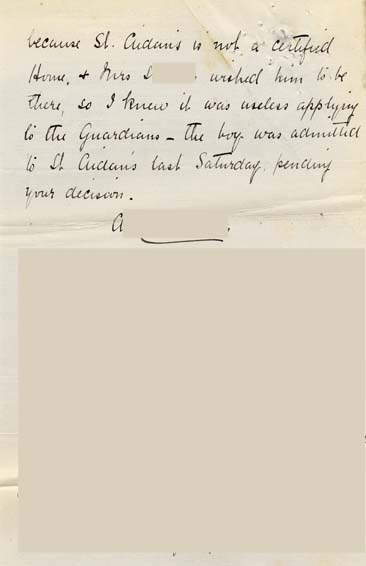 because St. Aidan's is not a certified
Home, & Mrs D s wished him to be
there, so I knew it was useless applying
to the Guardians - the boy was admitted
to St Aidan's last Saturday, pending
your decision.
A